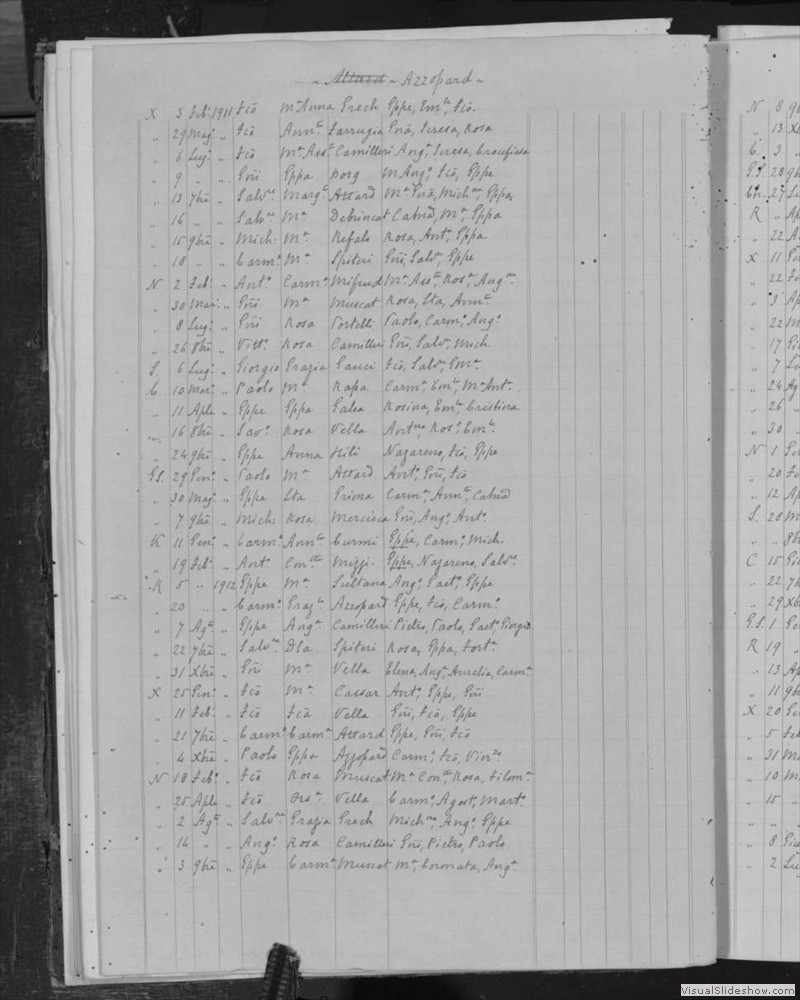 ~ Attard ~ Azzopard ~
X 3 Feb: 1911 Fcõ Mª Anna Grech Gppe, Emle, Fcõ.
„ 29 Mag: „ Fcõ Annta Farrugia Gnã, Teresa, Rosa
„ 6 Lug: „ Fcõ Mª Assta Camilleri Angº, Teresa, Crocefissa
„ 9 „ „ Gnñ Gppa Borg M Angº, Fcõ, Gppe
„ 13 7bre „ Salvre Margta Attard Mª Gnã, Michna, Gppa,
„ 16 „ „ Salvre Mª Debrincat Catnã, Mª, Gppa
„ 15 9bre „ Mich: Mª Refalo Rosa, Antª, Gppa.
„ 18 „ „ Carmº Mª Spiteri Gnñ, Salvre, Gppe
N 2 Feb: „ Antº Carmª Mifsud Mª Assta, Rosª, Angna
„ 30 Mar: „ Gnñ Mª Muscat Rosa, Sta, Annta
„ 8 Lug: „ Gnñ Rosa Portelli Paolo, Carmº, Angº
„ 26 8bre „ Vittº Rosa Camilleri Gnñ, Salvre, Mich.
S. 6 Lug: „ Giorgio Grazia Gauci Fcõ, Salvre, Emª
C 10 Mar: „ Paolo Mª Rapa Carmª, Emle, Mª Antª
„ 11 Aple „ Gppe Gppa Galea Rosina, Emle, Cristina
„ 16 8bre „ Savº Rosa Vella Antna, Rosº, Emle
„ 24 9bre „ Gppe Anna Hili Nazareno, Fcõ, Gppe
G.S. 29 Genº „ Paolo Mª Attard Antº, Gnñ, Fcõ
„ 30 Mag: „ Gppe Sta Grima Carmª, Annta, Catnã
„ 7 9bre „ Mich: Rosa Mercieca Gnñ, Angº, Antº
K 11 Genº „ Carmº Annta Curmi Gppe, Carmº, Mich.
„ 19 Feb: „ Antº Concta Mizzi Gppe, Nazareno, Salvre
R 5 „ 1912 Gppe Mª Sultana Angº, Gaetº, Gppe
„ 20 „ „ Carmº Grazla Azzopard Gppe, Fcõ, Carmº
„ 7 Agto „ Gppe Angª Camilleri Pietro, Paolo, Gaetº Giorgio
„ 22 7bre „ Salvre Dla Spiteri Rosa, Gppa, Fortª
„ 31 Xbre „ Gnñ Mª Vella Elena, Angª, Aurelia, Carmª
X 25 Genº „ Fcõ Mª Cassar Antº, Gppe, Gnñ
„ 11 Feb: „ Fcõ Fcã Vella Gnñ, Fcõ, Gppe
„ 21 7bre „ Carmº Carmª Attard Gppe, Gnñ, Fcõ
„ 4 Xbre „ Paolo Gppa Azzopard Carmº, Fcõ, Vinzo
N 18 Feb: „ Fcõ Rosa Muscat Mª Concta, Rosa, Filomª
„ 25 Aple „ Fcõ Orsª Vella Carmº, Agost, Martº
„ 2 Agto „ Salvre Grazia Grech Michna, Angº, Gppe
„ 14 „ „ Angº Rosa Camilleri Gnñ, Pietro, Paolo
„ 3 9bre „ Gppe Carmª Muscat Mª, Coronata, Angª
N 8
„ 13
C 3
G.S. 28
27
R „
„ 22
X 11
„ 22
„ 3
„ 22
„ 17
„ 7
„ 24
„ 26
„ 30
N 1
„ 20
„ 12
S. 28
C 15
„ 22
„ 29
G.S. 1
R 19
„ 13
„ 11
X 20
„ 5
„ 31
„ 10
„ 15
„ 8
„ 2
VisualSlideshow.com